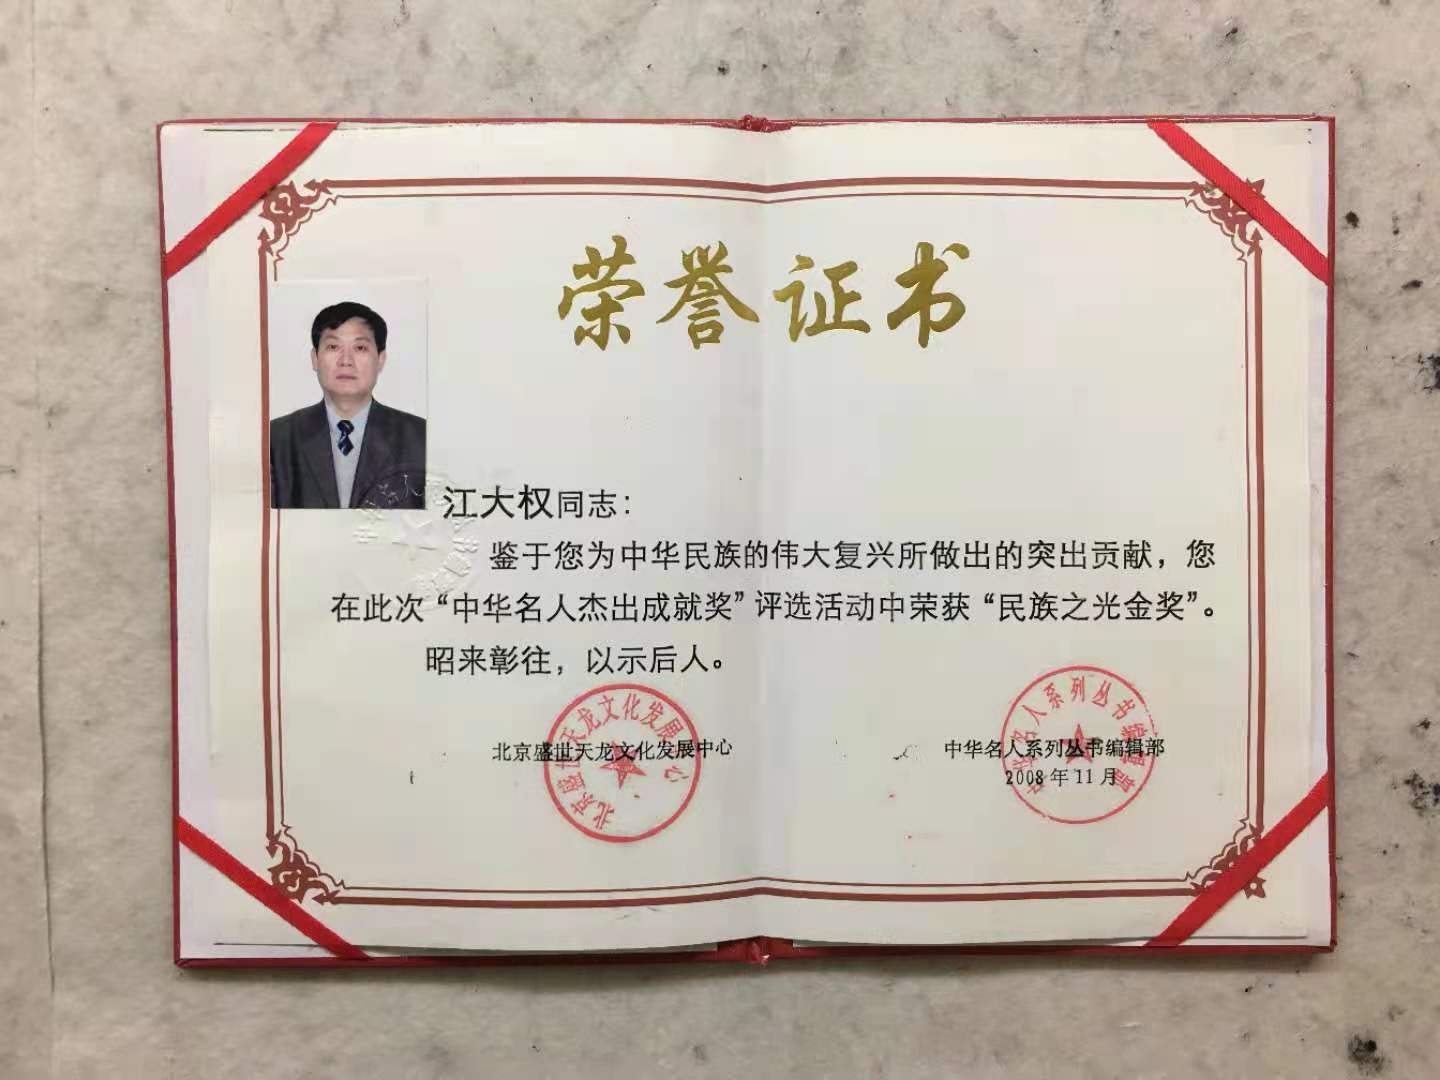 荣誉证书
江大权同志：
鉴于您为中华民族的伟大复兴所做出的突出贡献，您
在此次“中华名人杰出成就奖”评选活动中荣获“民族之光金奖”。
昭来彰往，以示后人。
北京盛世天龙文化发展中心
中华名人系列丛书编辑部
2008年11月
北京盛世天龙文化发展中心
中华名人系列丛书编辑部